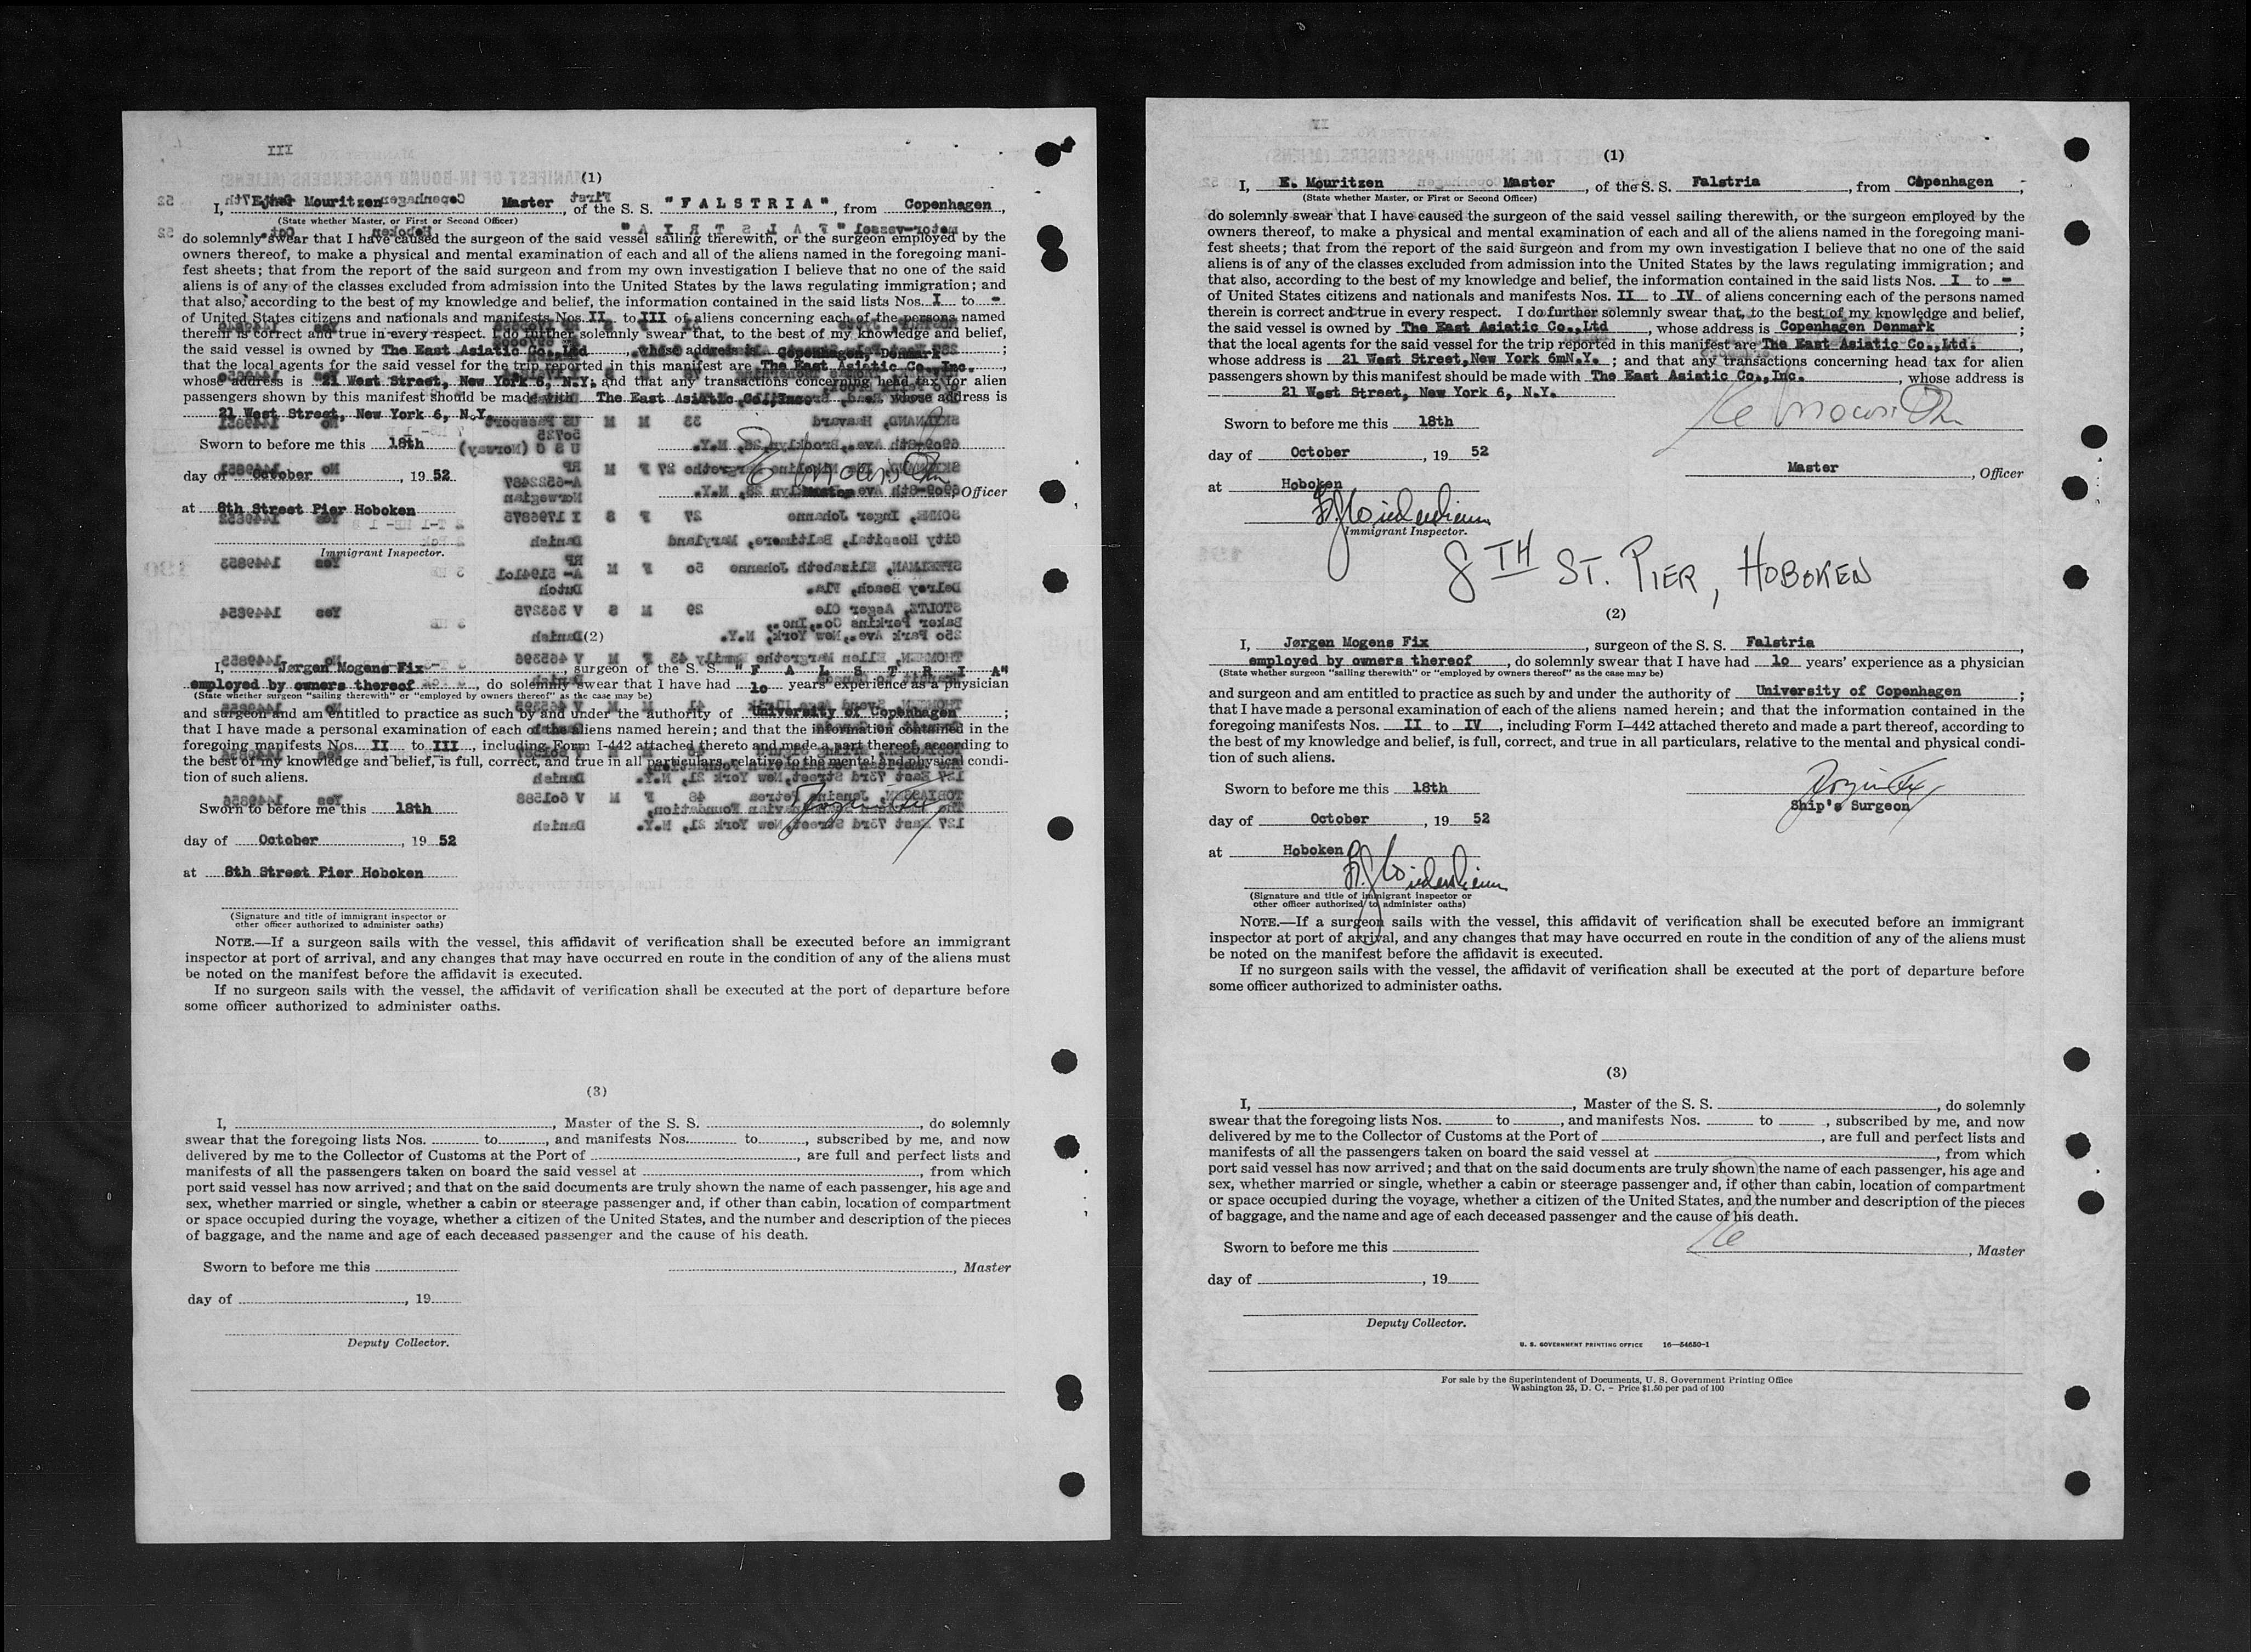 (1)
I, Ejnar Mouritzen Master, of the S. S. "F A L S T R I A", from Copenhagen,
(State whether Master, or First or Second Officer)
do solemnly swear that I have caused the surgeon of the said vessel sailing therewith, or the surgeon employed by the
owners thereof, to make a physical and mental examination of each and all of the aliens named in the foregoing mani-
fest sheets; that from the report of the said surgeon and from my own investigation I believe that no one of the said
aliens is of any of the classes excluded from admission into the United States by the laws regulating immigration; and
that also, according to the best of my knowledge and belief, the information contained in the said lists Nos. I to -
of United States citizens and nationals and manifests Nos. II to III of aliens concerning each of the persons named
therein is correct and true in every respect. I do further solemnly swear that, to the best of my knowledge and belief,
the said vessel is owned by The East Asiatic Co., Ltd, whose address is Copenhagen, Denmark;
that the local agents for the said vessel for the trip reported in this manifest are The East Asiatic Co., Inc.,
whose address is 21 West Street, New York 6, N.Y. and that any transactions concerning head tax for alien
passengers shown by this manifest should be made with The East Asiatic Co., Inc. whose address is
21 West Street, New York 6, N.Y.
Sworn to before me this 18th
day of October, 19 52
Master Officer
at 8th Street Pier Hoboken
Immigrant Inspector.
(2)
I, Jørgen Mogens Fix, surgeon of the S. S. "F A L S T R I A"
employed by owners thereof, do solemnly swear that I have had 10 years' experience as a physician
(State whether surgeon "sailing therewith" or "employed by owners thereof" as the case may be)
and surgeon and am entitled to practice as such by and under the authority of University of Copenhagen;
that I have made a personal examination of each of the aliens named herein; and that the information contained in the
foregoing manifests Nos. II to III, including Form I-442 attached thereto and made a part thereof, according to
the best of my knowledge and belief, is full, correct, and true in all particulars, relative to the mental and physical condi-
tion of such aliens.
Sworn to before me this 18th
day of October, 19 52
at 8th Street Pier Hoboken
(Signature and title of immigrant inspector or
other officer authorized to administer oaths)
NOTE.—If a surgeon sails with the vessel, this affidavit of verification shall be executed before an immigrant
inspector at port of arrival, and any changes that may have occurred en route in the condition of any of the aliens must
be noted on the manifest before the affidavit is executed.
If no surgeon sails with the vessel, the affidavit of verification shall be executed at the port of departure before
some officer authorized to administer oaths.
(3)
I, , Master of the S. S. , do solemnly
swear that the foregoing lists Nos. to , and manifests Nos. to , subscribed by me, and now
delivered by me to the Collector of Customs at the Port of , are full and perfect lists and
manifests of all the passengers taken on board the said vessel at , from which
port said vessel has now arrived; and that on the said documents are truly shown the name of each passenger, his age and
sex, whether married or single, whether a cabin or steerage passenger and, if other than cabin, location of compartment
or space occupied during the voyage, whether a citizen of the United States, and the number and description of the pieces
of baggage, and the name and age of each deceased passenger and the cause of his death.
Sworn to before me this
, Master
day of , 19
Deputy Collector.
(1)
I, E. Mouritzen Master, of the S. S. Falstria, from Copenhagen,
(State whether Master, or First or Second Officer)
do solemnly swear that I have caused the surgeon of the said vessel sailing therewith, or the surgeon employed by the
owners thereof, to make a physical and mental examination of each and all of the aliens named in the foregoing mani-
fest sheets; that from the report of the said surgeon and from my own investigation I believe that no one of the said
aliens is of any of the classes excluded from admission into the United States by the laws regulating immigration; and
that also, according to the best of my knowledge and belief, the information contained in the said lists Nos. I to -
of United States citizens and nationals and manifests Nos. II to IV of aliens concerning each of the persons named
therein is correct and true in every respect. I do further solemnly swear that, to the best of my knowledge and belief,
the said vessel is owned by The East Asiatic Co., Ltd, whose address is Copenhagen Denmark;
that the local agents for the said vessel for the trip reported in this manifest are The East Asiatic Co., Ltd.,
whose address is 21 West Street, New York 6mN.Y.; and that any transactions concerning head tax for alien
passengers shown by this manifest should be made with The East Asiatic Co., Inc., whose address is
21 West Street, New York 6, N.Y.
Sworn to before me this 18th
day of October, 19 52
Master, Officer
at Hoboken
Immigrant Inspector.
8TH ST. PIER, HOBOKEN
(2)
I, Jørgen Mogens Fix, surgeon of the S. S. Falstria
employed by owners thereof, do solemnly swear that I have had 10 years' experience as a physician
(State whether surgeon "sailing therewith" or "employed by owners thereof" as the case may be)
and surgeon and am entitled to practice as such by and under the authority of University of Copenhagen;
that I have made a personal examination of each of the aliens named herein; and that the information contained in the
foregoing manifests Nos. II to IV, including Form I-442 attached thereto and made a part thereof, according to
the best of my knowledge and belief, is full, correct, and true in all particulars, relative to the mental and physical condi-
tion of such aliens.
Sworn to before me this 18th
Ship's Surgeon
day of October, 19 52
at Hoboken
(Signature and title of immigrant inspector or
other officer authorized to administer oaths)
NOTE.—If a surgeon sails with the vessel, this affidavit of verification shall be executed before an immigrant
inspector at port of arrival, and any changes that may have occurred en route in the condition of any of the aliens must
be noted on the manifest before the affidavit is executed.
If no surgeon sails with the vessel, the affidavit of verification shall be executed at the port of departure before
some officer authorized to administer oaths.
(3)
I, , Master of the S. S. , do solemnly
swear that the foregoing lists Nos. to , and manifests Nos. to , subscribed by me, and now
delivered by me to the Collector of Customs at the Port of , are full and perfect lists and
manifests of all the passengers taken on board the said vessel at , from which
port said vessel has now arrived; and that on the said documents are truly shown the name of each passenger, his age and
sex, whether married or single, whether a cabin or steerage passenger and, if other than cabin, location of compartment
or space occupied during the voyage, whether a citizen of the United States, and the number and description of the pieces
of baggage, and the name and age of each deceased passenger and the cause of his death.
Sworn to before me this
, Master
day of , 19
Deputy Collector.
U. S. GOVERNMENT PRINTING OFFICE 16—54650-1
For sale by the Superintendent of Documents, U. S. Government Printing Office
Washington 25, D. C. - Price $1.50 per pad of 100